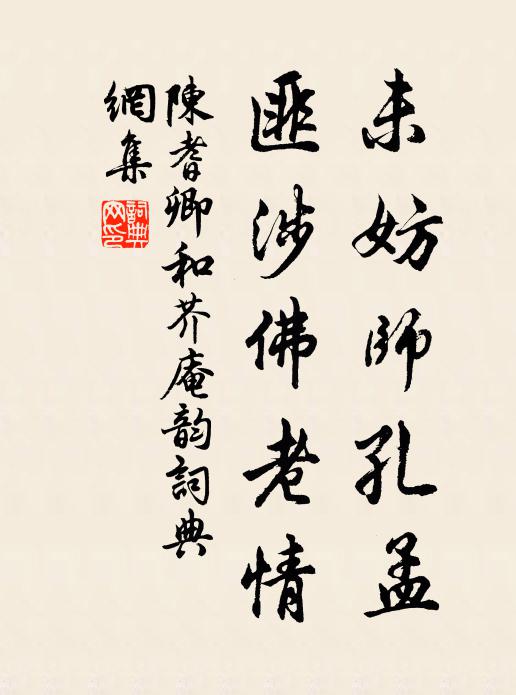 未妨師孔孟
匪涉佛老情
陳耆卿和芥庵韵詞典
網集
詞典網印